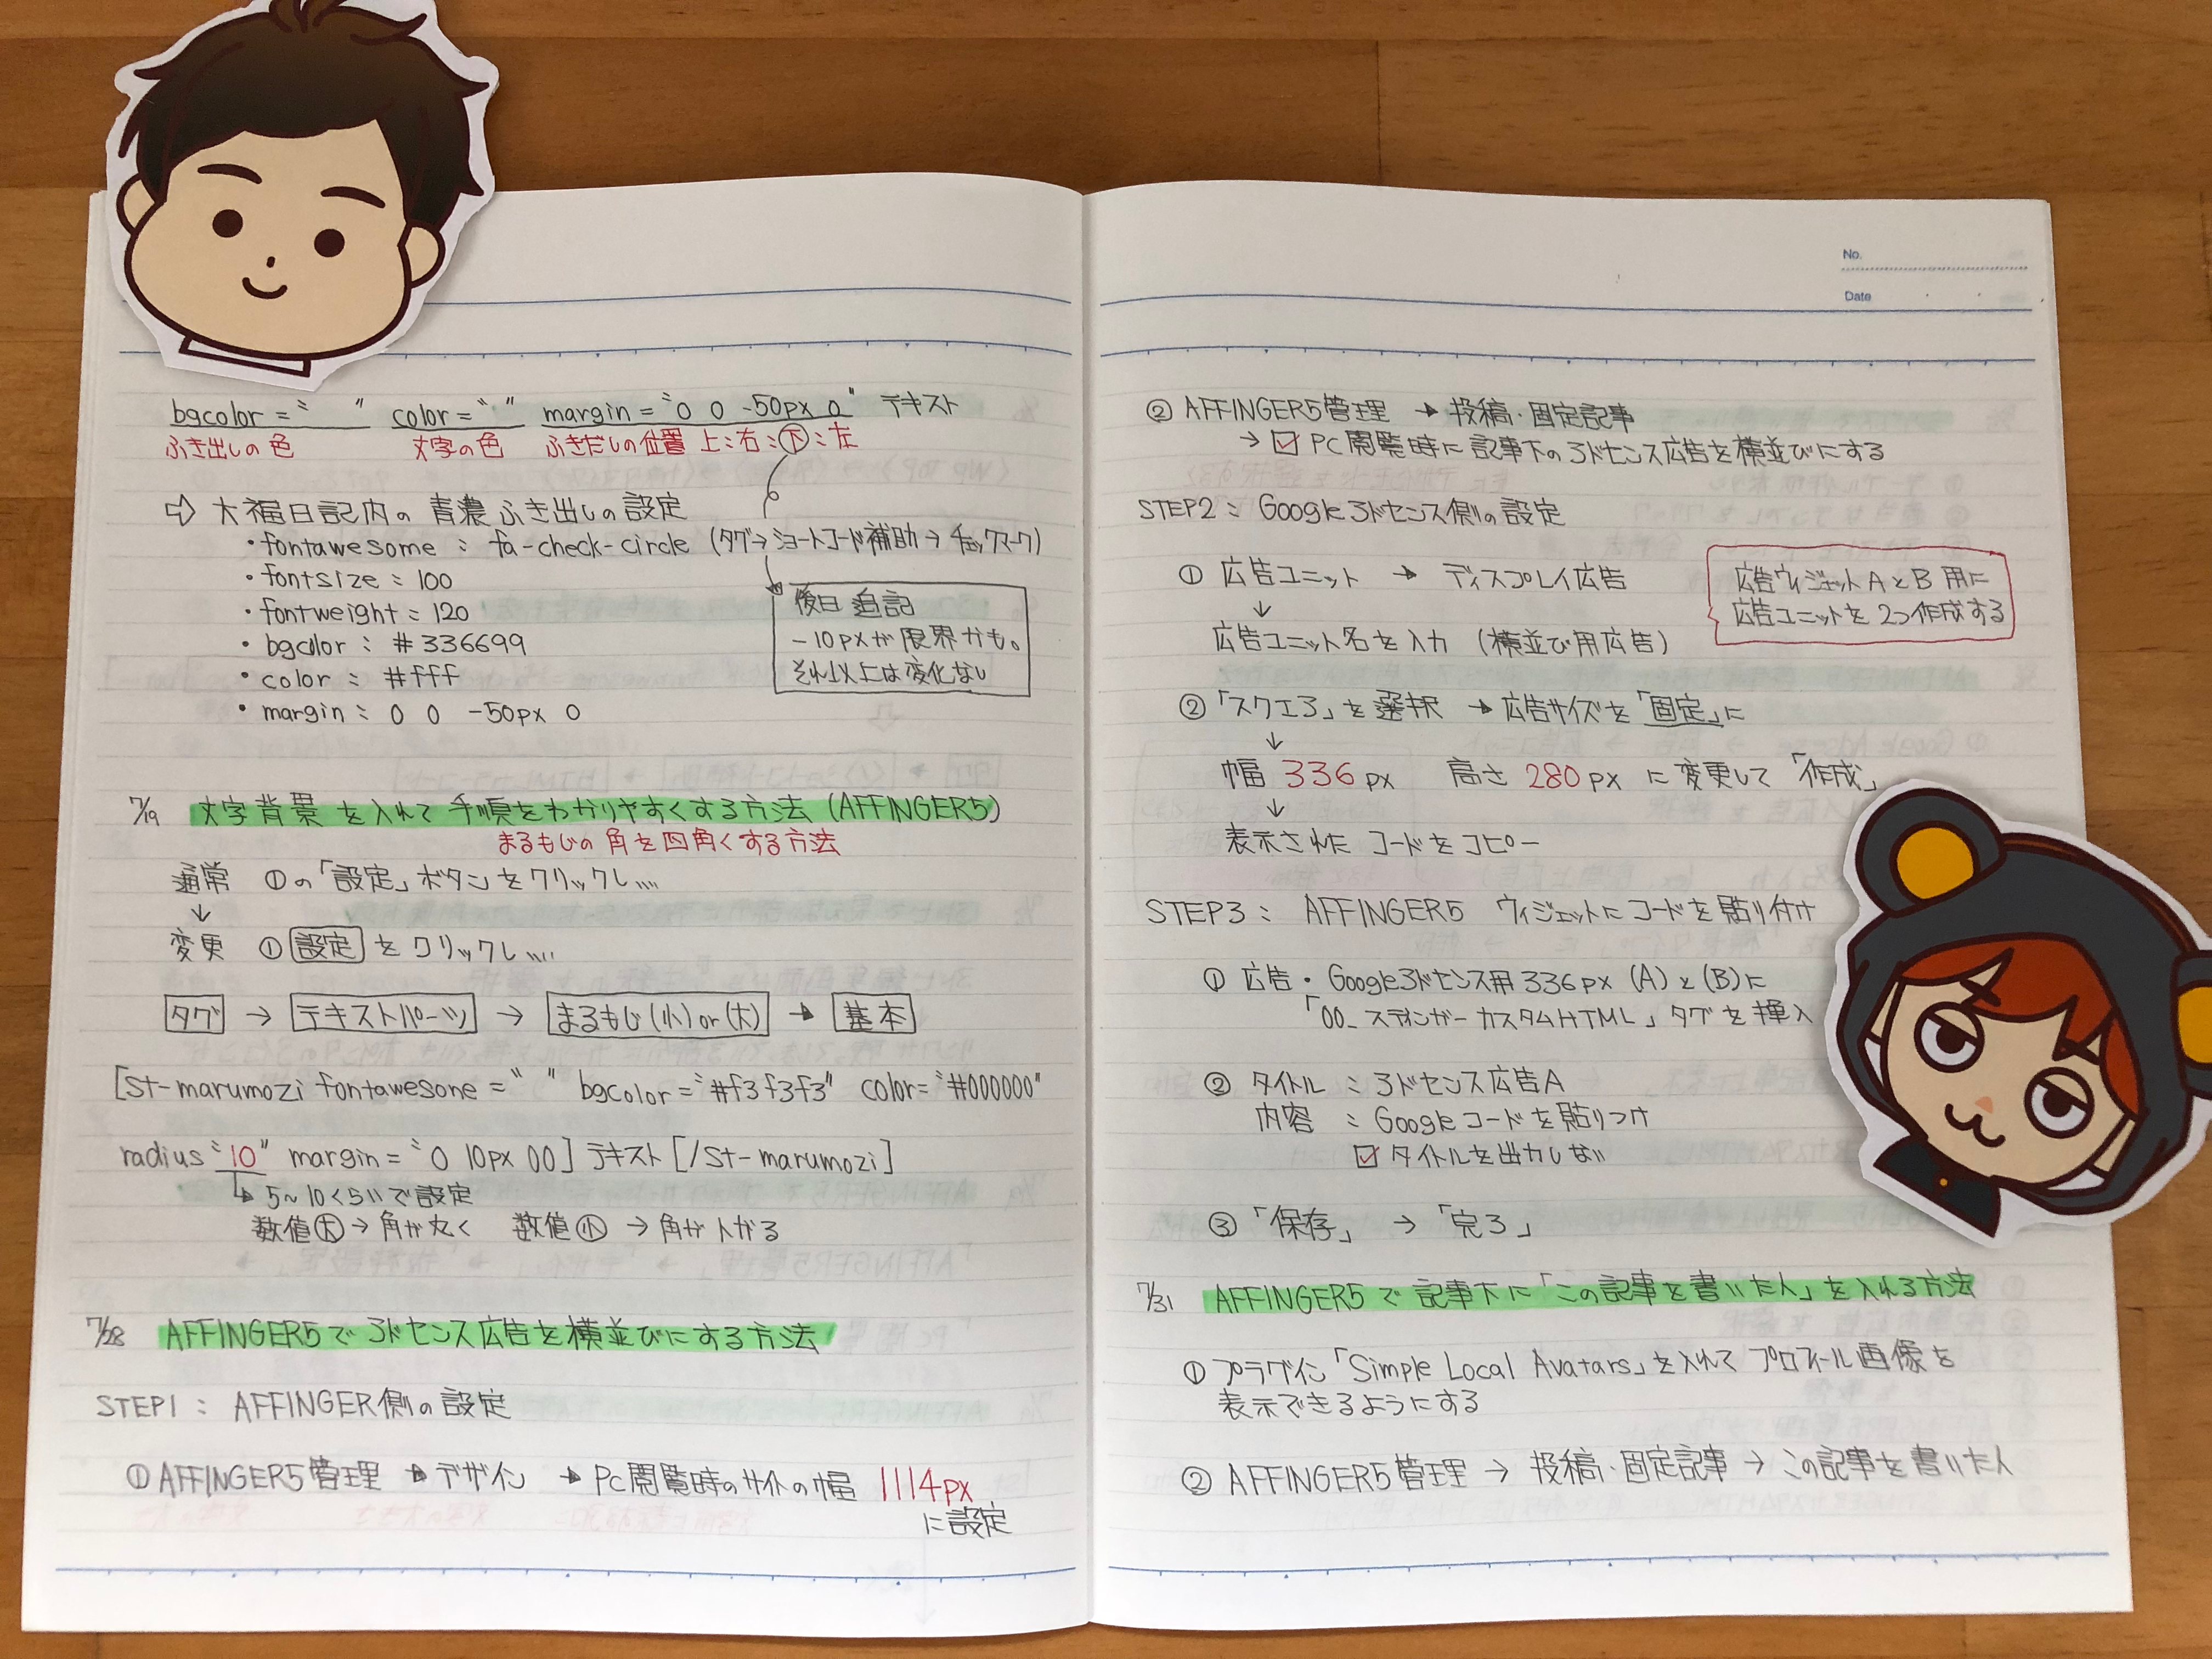 bgcolor=〝 〟 color=〝 〟 margin=〝0 0 -50px 0〟 テキスト
ふき出しの色 文字の色 ふきだしの位置 上:右:下:左
⇨ 大福日記内の 青濃ふき出しの設定
・fontawesome : fa-check-circle (タグ→ショートコード補助→チェックマーク)
・fontsize : 100
・fontweight : 120
・bgcolor : #336699
・color : #fff
・margin : 0 0 -50px 0
後日追記
-10pxが限界かも。
それ以上は変化なし
7/19 文字背景を入れて手順をわかりやすくする方法(AFFINGER5)
まるもじの角を四角くする方法
通常 ①の「設定」ボタンをクリックし、、、、
↓
変更 ① 設定 をクリックし、、、、
タグ → テキストパーツ → まるもじ(小)or(大) → 基本
[st-marumozi fontawesone=〝 〟 bgcolor=〝#f3f3f3〟 color=〝#000000〟
radius〝10〟 margin=〝0 10px 00] テキスト [/st-marumozi]
↳ 5~10くらいで設定
数値大→角が丸く 数値小→角が上がる
7/28 AFFINGER5でアドセンス広告を横並びにする方法
STEP1 : AFFINGER側の設定
① AFFINGER5管理 → デザイン → PC閲覧時のサイトの幅 1114px
に設定
No.
Date
② AFFINGER5管理 → 投稿・固定記事
→ ☑ PC閲覧時に記事下のアドセンス広告を横並びにする
STEP2 : Googleアドセンス側の設定
① 広告ユニット → ディスプレイ広告
↓
広告ユニット名を入力 (横並び用広告)
広告ウィジェットAとB用に
広告ユニットを2つ作成する
②「スクエア」を選択 → 広告サイズを「固定」に
↓
幅 336px 高さ 280px に変更して「作成」
↓
表示されたコードをコピー
STEP3 : AFFINGER5 ウィジェットにコードを貼り付け
① 広告・Googleアドセンス用336px (A)と(B)に
「00_スティンガーカスタムHTML」タグを挿入
② タイトル : アドセンス広告A
内容 : Googleコードを貼りつけ
☑ タイトルを出力しない
③「保存」 → 「完了」
7/31 AFFINGER5で記事下に「この記事を書いた人」を入れる方法
① プラグイン「Simple Local Avatars」を入れてプロフィール画像を
表示できるようにする
② AFFINGER5管理 → 投稿・固定記事 → この記事を書いた人